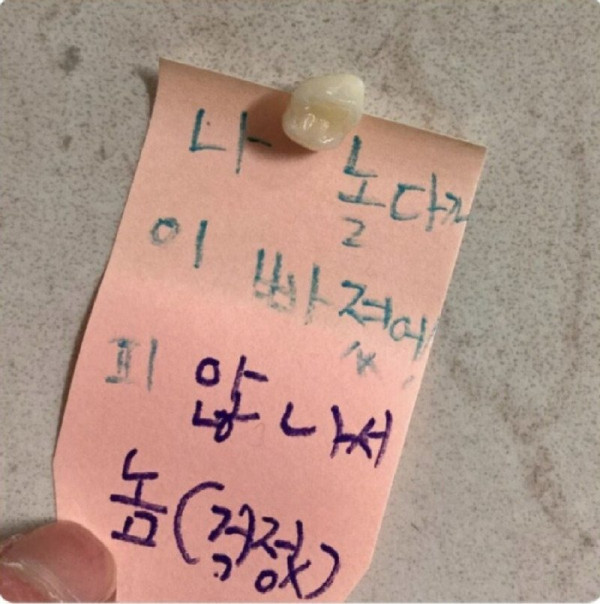 나 놀다가
이 빠졌어
피 않나서
놈(걱정x)